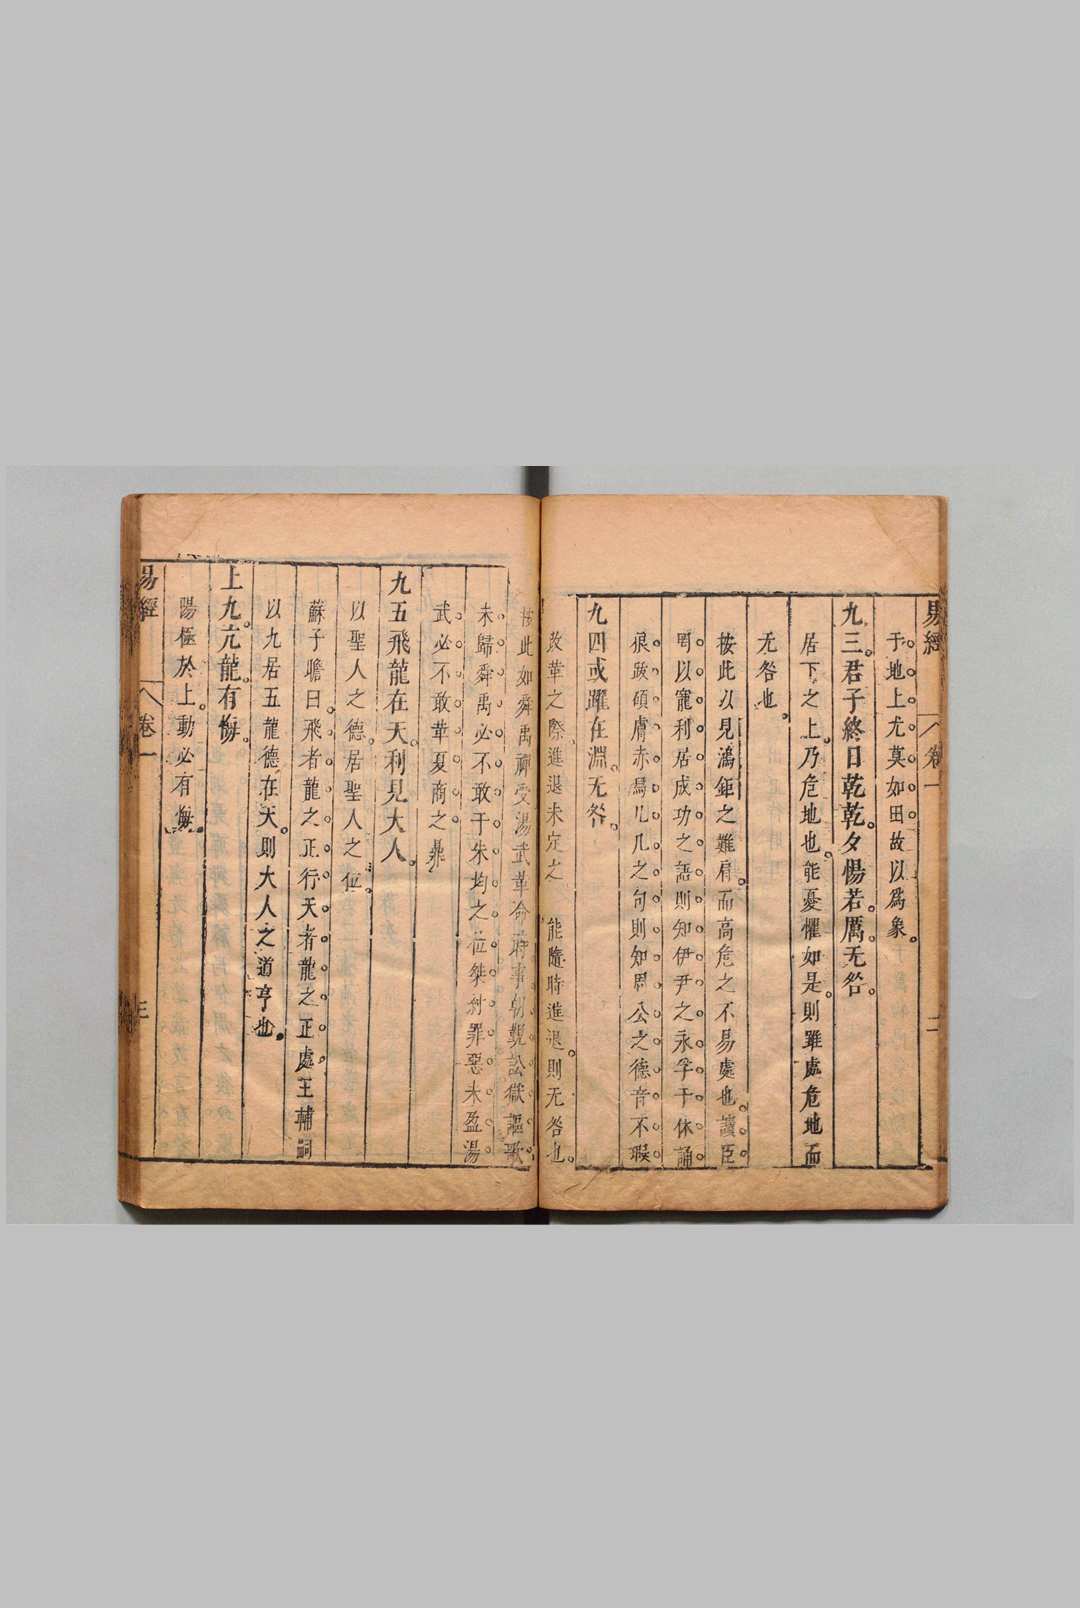 易經 卷一 二
于地上尤莫如田故以爲象
九三君子終日乾乾夕惕若厲无咎
居下之上乃危地也能憂懼如是則雖處危地而
无咎也
按此以見鴻鉅之難肩而高危之不易處也讀臣
罔以寵利居成功之語則知伊尹之永孚于休誦
狼跋碩膚赤舄几几之句則知周公之德音不瑕
九四或躍在淵无咎
改革之際進退未定之 能隨時進退則无咎也
按此如舜禹禪受湯武革命時事朝覲訟獄謳歌
未歸舜禹必不敢于朱均之位桀紂罪惡未盈湯
武必不敢革夏商之鼎
九五飛龍在天利見大人
以聖人之德居聖人之位
蘇子瞻曰飛者龍之正行天者龍之正處王輔嗣
以九居五龍德在天則大人之道亨也
上九亢龍有悔
陽極於上動必有悔
易經 卷一 三